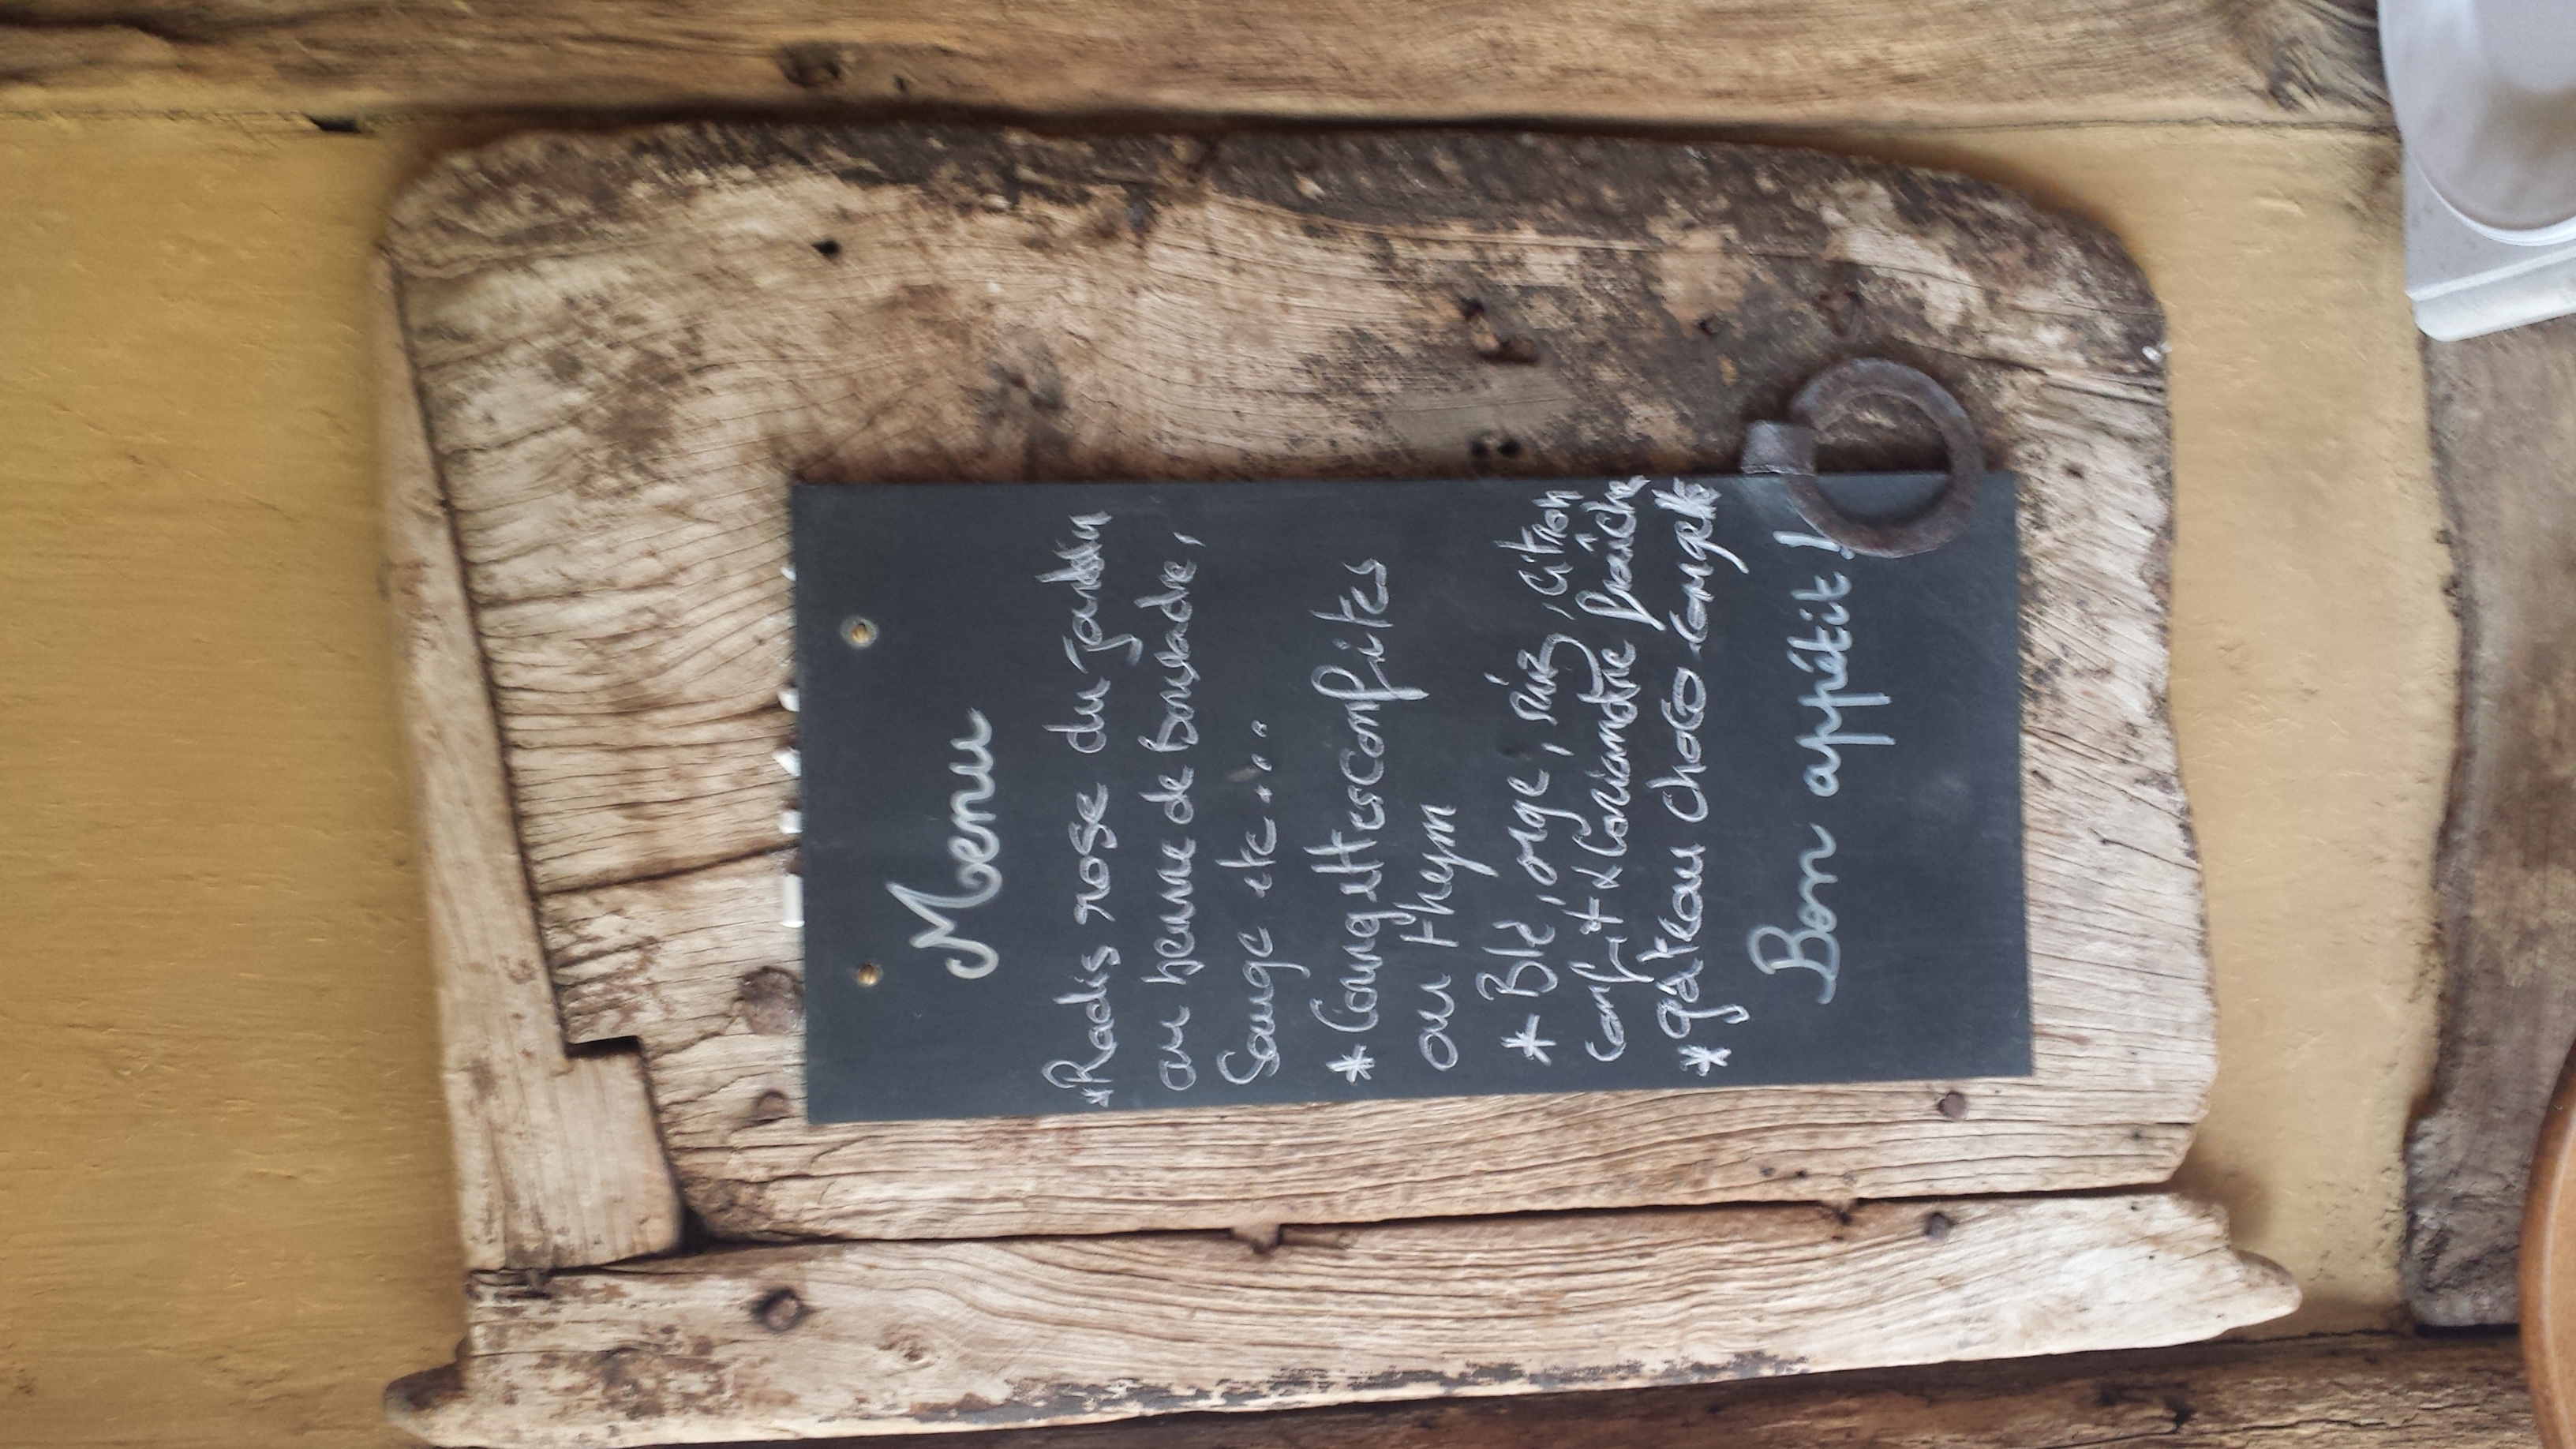 Menu
*Radis rose du jardin
au beurre de bouladre,
Sauge etc...
* Courgettes confites
au thym
* Blé, orge, riz, citron
confit & coriandre fraîche
*gâteau choco courgette
Bon appétit !